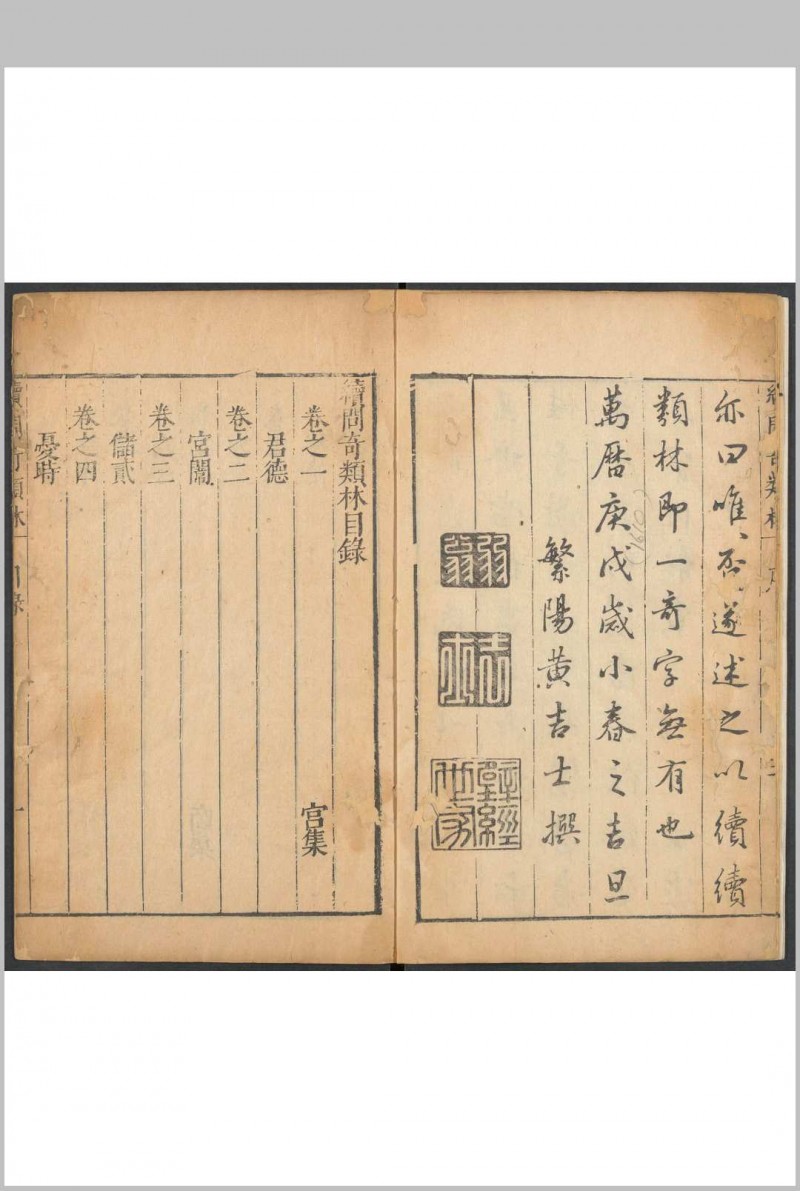 亦曰唯、否、遂述之以續續
類林即一奇字無有也
萬曆庚戌歲小春之吉旦
(1610)
繁陽黃吉士撰
續問奇類林目錄
卷之一
宫集
君德
卷之二
宮闈
卷之三
儲貳
卷之四
憂時
續問奇類林
目錄
一